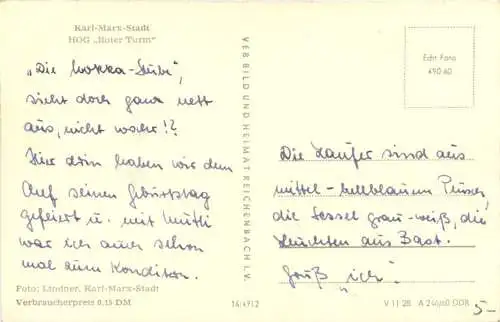 Karl-Marx-Stadt
HOG „Roter Turm“
„Die Mokka-Stube“,
sieht doch ganz nett
aus, nicht wahr!?
Hier drin haben wir dem
seinen Geburtstag
gefeiert u. mit Mutti
war ich auch schon
mal zum Konditor.
Foto: Lindner, Karl-Marx-Stadt
Verbraucherpreis 0,15 DM
VEB BILD UND HEIMAT REICHENBACH I. V.
16/4912
Echt Foto
490 60
Die Läufer sind aus
mittel-hellblauem
die Sessel grau-weiß, die
Leuchten aus Bast.
Gruß „ich“
V 11 28 A 240/60 DDR
5-